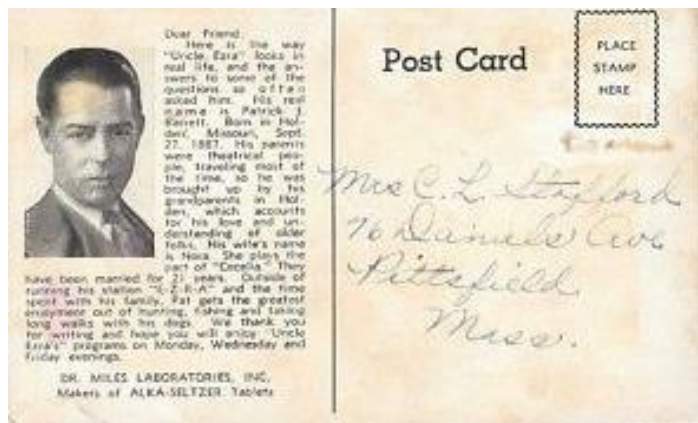 Dear Friend,
Here is the way
"Uncle Ezra" looks in
real life, and the an-
swers to some of the
questions so often
asked him. His real
name is Patrick J.
Barrett. Born in Hol-
den, Missouri, Sept.
27, 1887. His parents
were theatrical peo-
ple, traveling most of
the time, so he was
brought up by his
grandparents in Hol-
den, which accounts
for his love and un-
derstanding of older
folks. His wife's name
is Nora. She plays the
part of "Cecelia." They
have been married for 21 years. Outside of
running his station "E-Z-R-A" and the time
spent with his family, Pat gets the greatest
enjoyment out of hunting, fishing and taking
long walks with his dogs. We thank you
for writing and hope you will enjoy "Uncle
Ezra's" programs on Monday, Wednesday and
Friday evenings.
DR. MILES LABORATORIES, INC.
Makers of ALKA-SELTZER Tablets
Post Card
PLACE
STAMP
HERE
Mrs C. L. Stafford
76 Daniels Ave
Pittsfield
Mass.